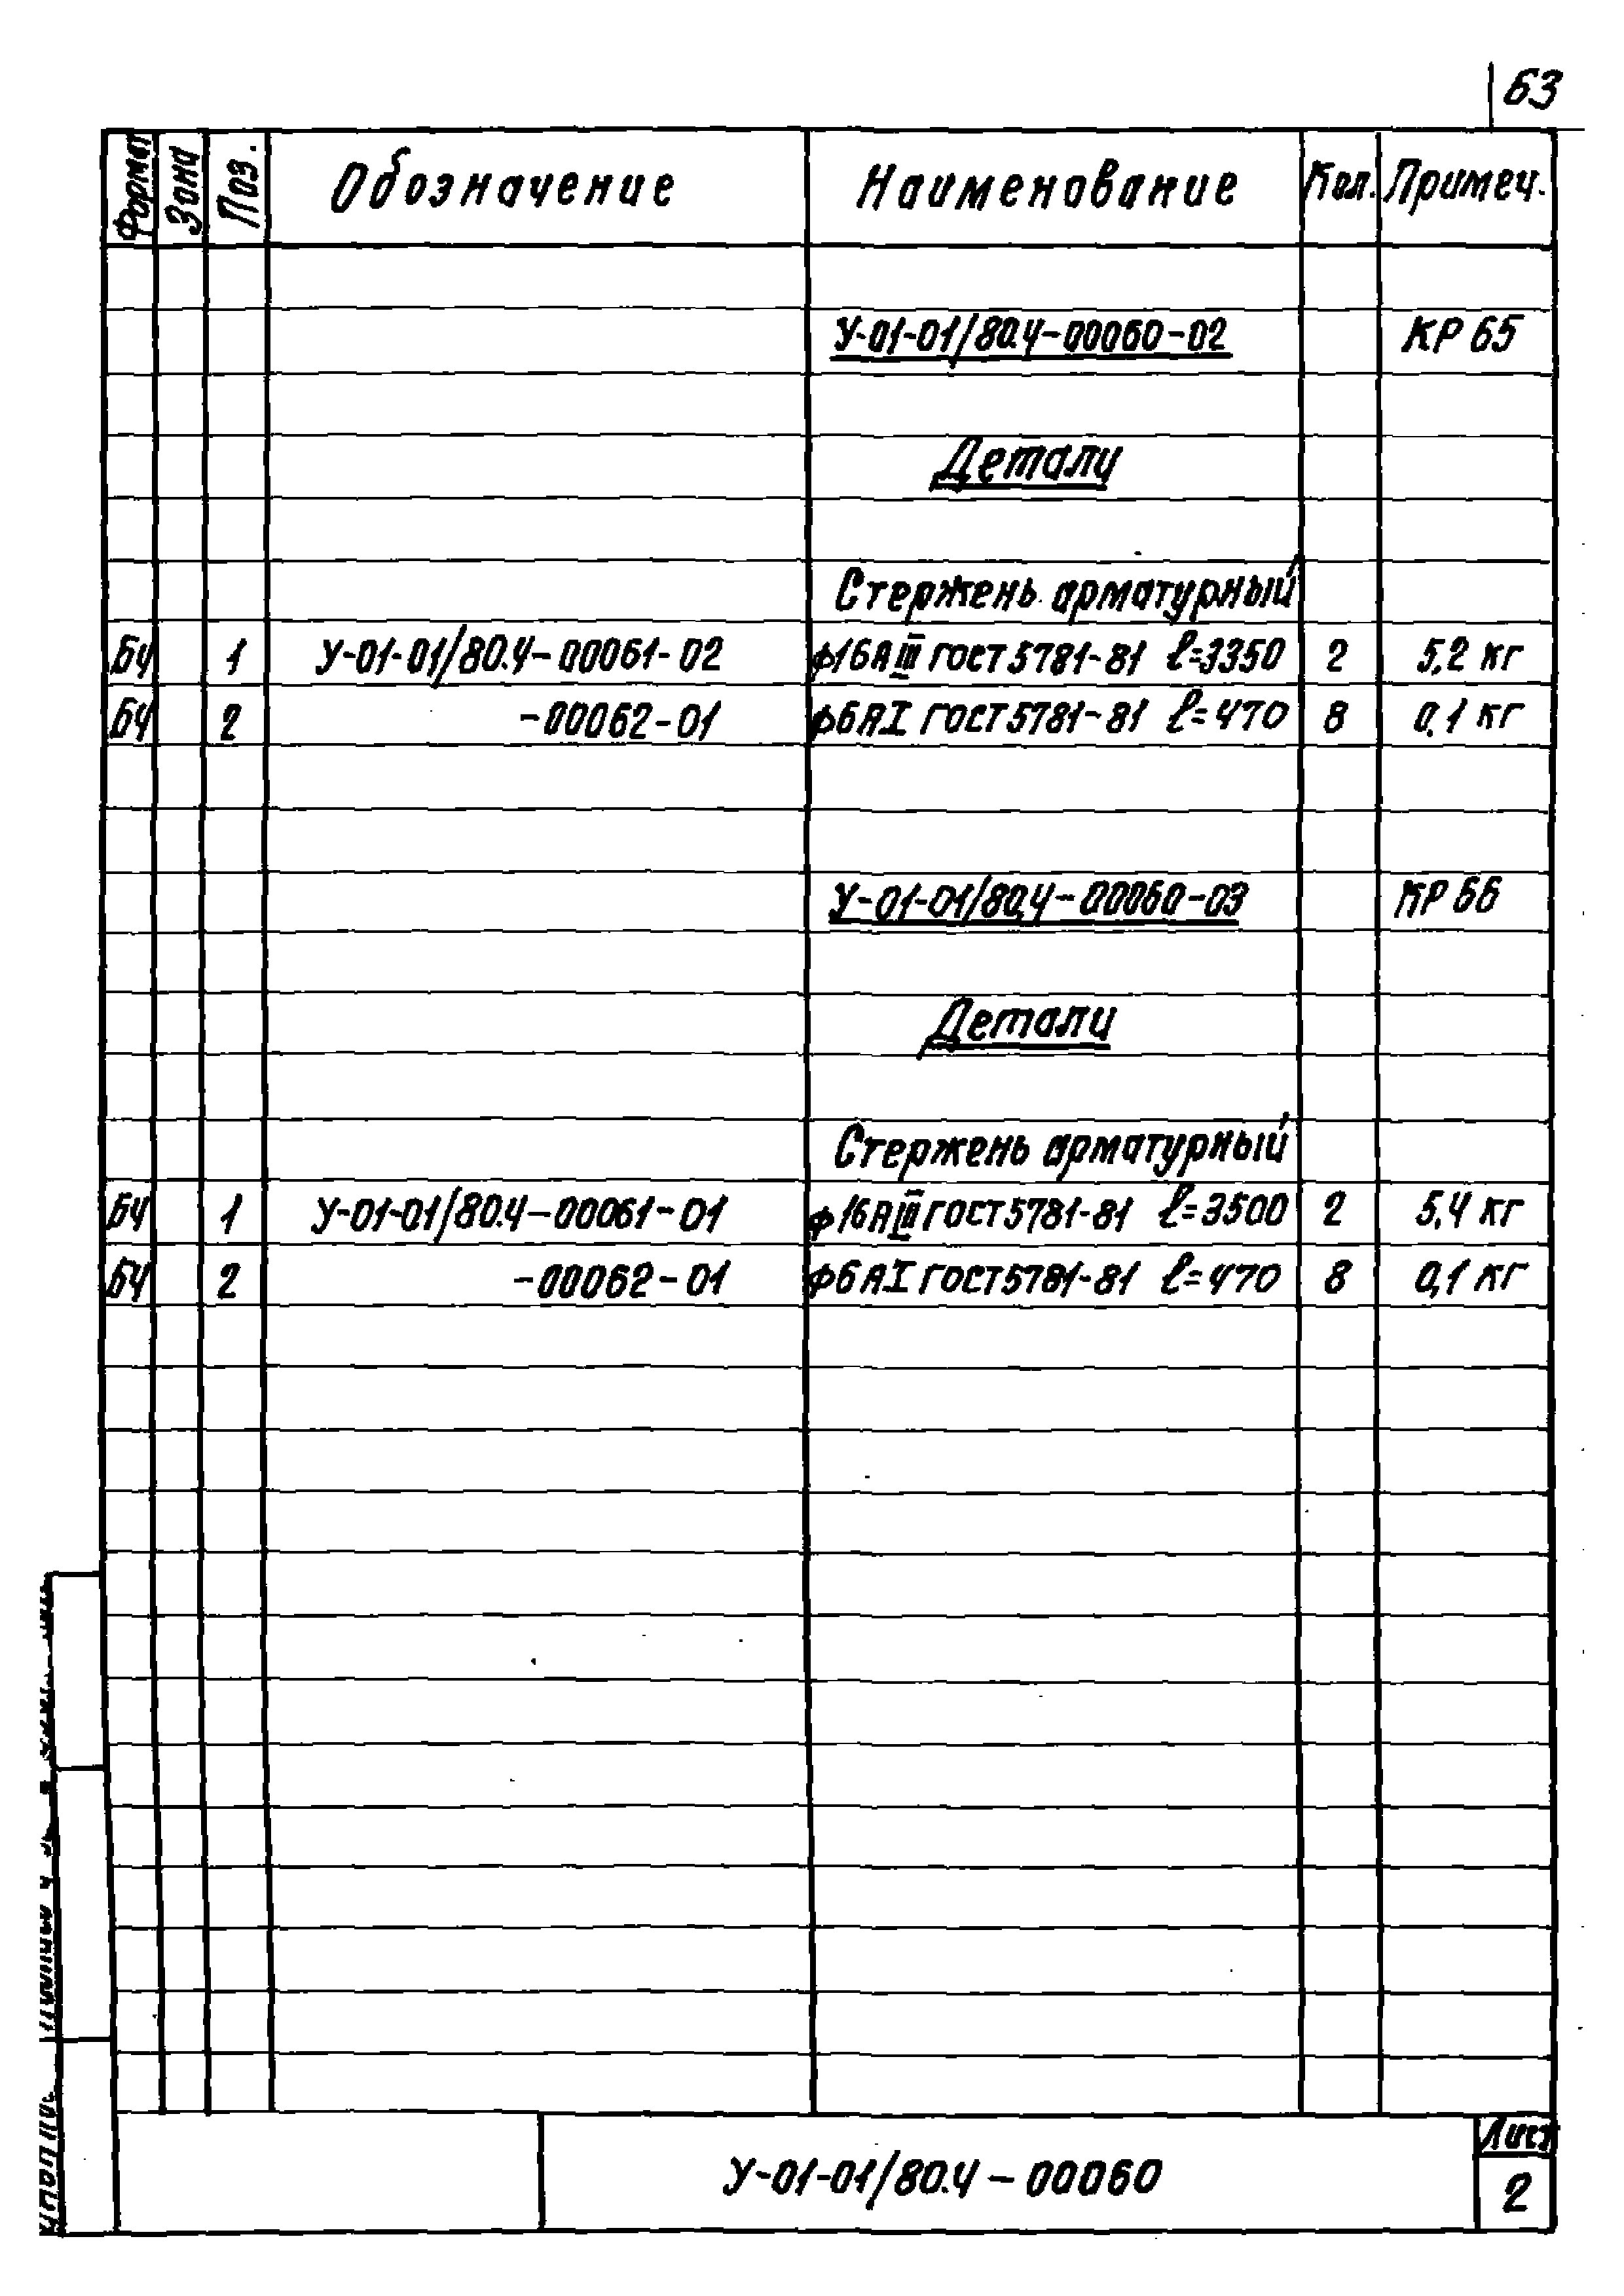 63
Формат Зона Поз. Обозначение Наименование Кол. Примеч.
У-01-01/80.4-00060-02 КР 65
Детали
Стержень арматурный
БЧ 1 У-01-01/80.4-00061-02 ф16АIII ГОСТ 5781-81 ℓ=3350 2 5,2 кг
БЧ 2 -00062-01 ф6АI ГОСТ 5781-81 ℓ=470 8 0,1 кг
У-01-01/80.4-00060-03 КР 66
Детали
Стержень арматурный
БЧ 1 У-01-01/80.4-00061-01 ф16АIII ГОСТ 5781-81 ℓ=3500 2 5,4 кг
БЧ 2 -00062-01 ф6АI ГОСТ 5781-81 ℓ=470 8 0,1 кг
У-01-01/80.4-00060
Лист
2